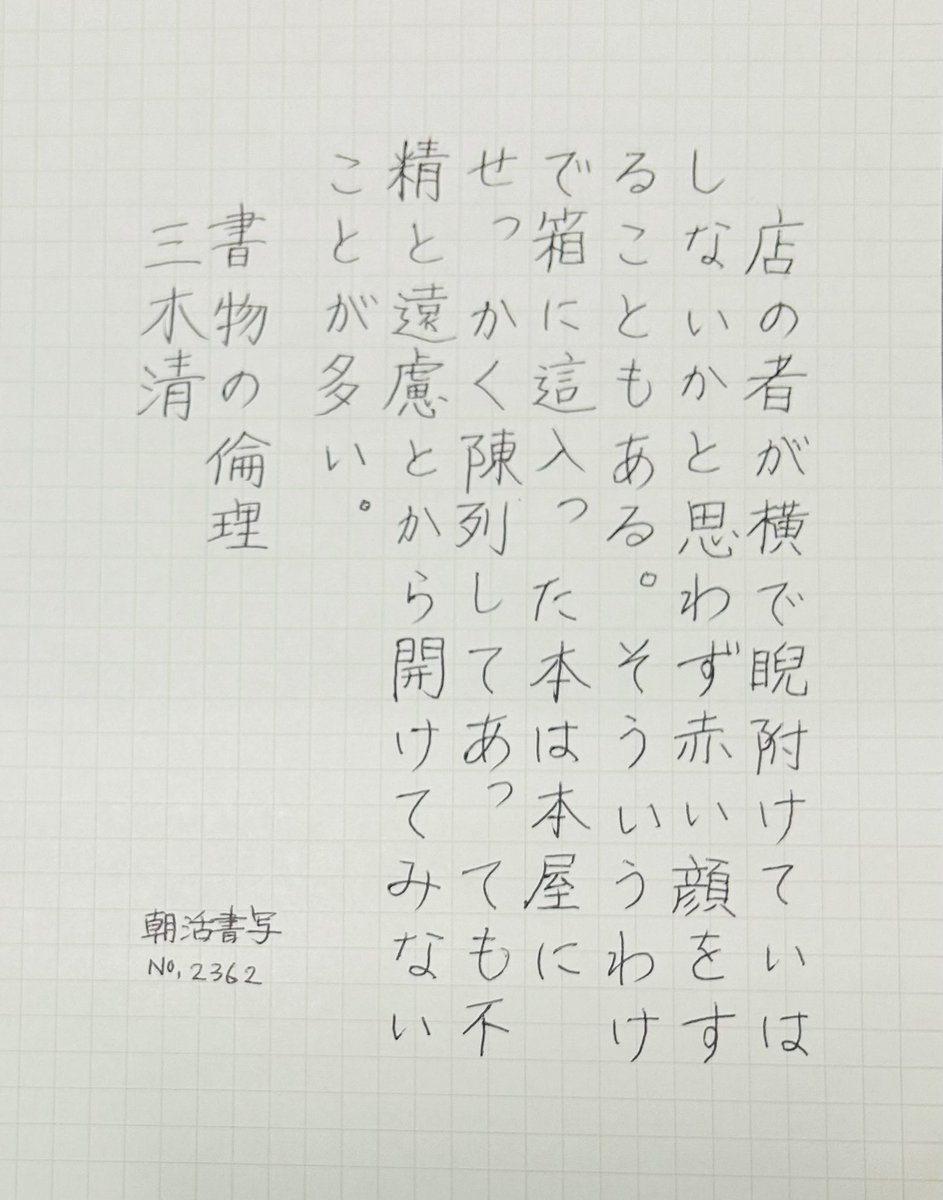 店の者が横で睨附けていは
しないかと思わず赤い顔をす
ることもある。そういうわけ
で箱に這入った本は本屋に
せっかく陳列してあっても不
精と遠慮とから開けてみない
ことが多い。
書物の倫理
三木清
朝活書写
No, 2362